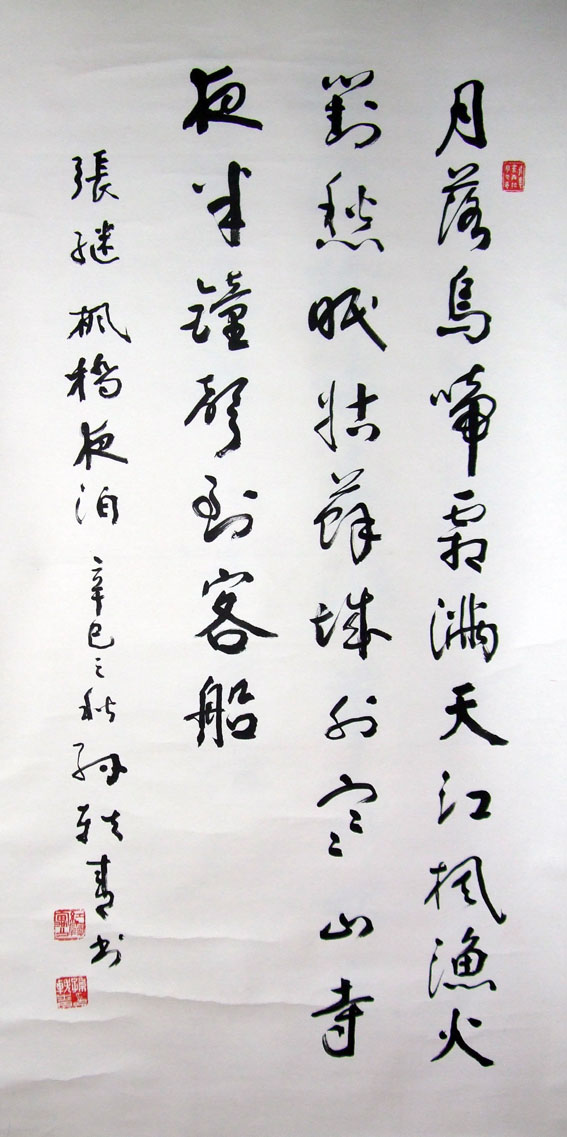 月落烏啼霜滿天江楓漁火
對愁眠姑蘇城外寒山寺
夜半鐘聲到客船
張繼楓橋夜泊 辛巳之秋 孫軼青书